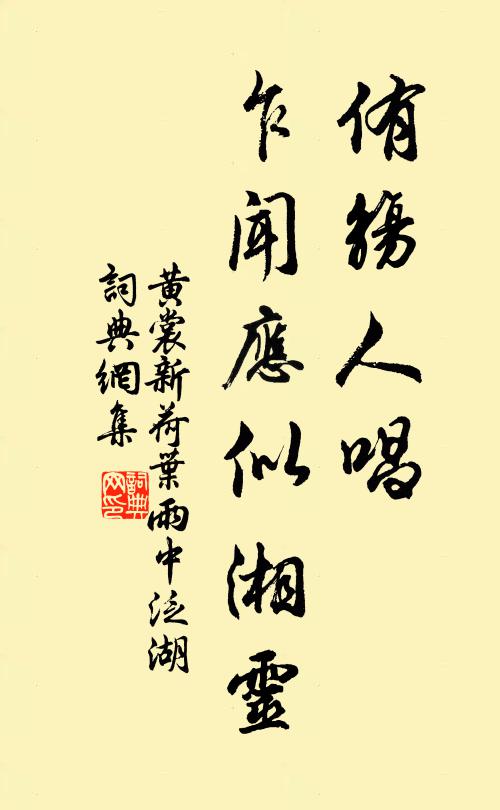 侑觴人唱
乍聞應似湘靈
黃裳新荷葉雨中泛湖
詞典網集
詞典網印